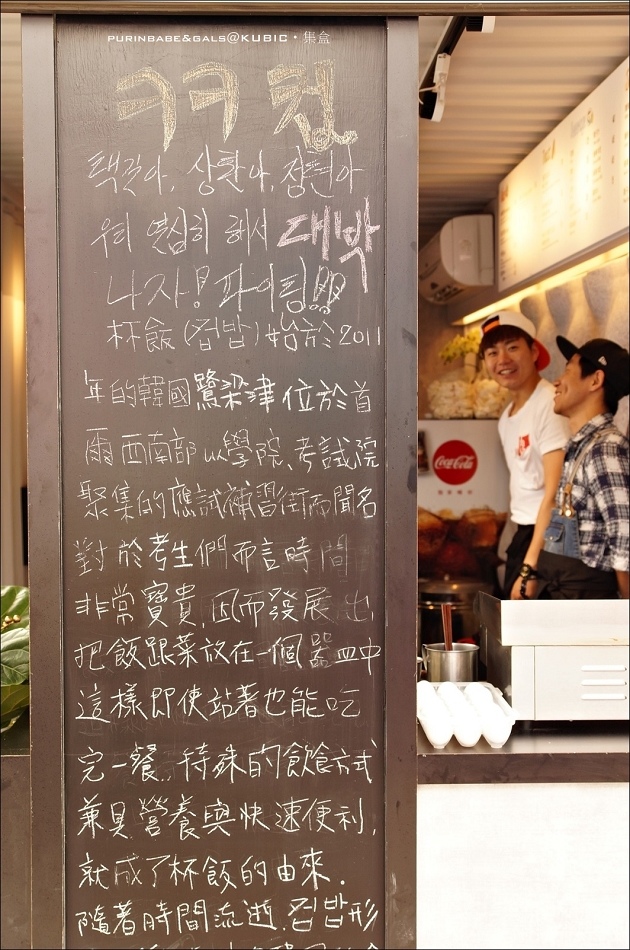 PURINBABE&GALS@KUBIC・集盒
ㅋㅋ 컵
택곤아, 상환아, 정현아
우리 열심히 해서 대박
나자! 파이팅!!!
杯飯 (컵밥) 始於 2011
年的韓國鷺梁津 位於首
爾西南部 以學院、考試院
聚集的應試補習街而聞名
對於考生們而言時間
非常寶貴, 因而發展出,
把飯跟菜放在一個器皿中
這樣即使站著也能吃
完一餐, 特殊的飲食方式
兼具營養與快速便利,
就成了杯飯的由來.
隨著時間流逝. 컵밥形
Coca-Cola